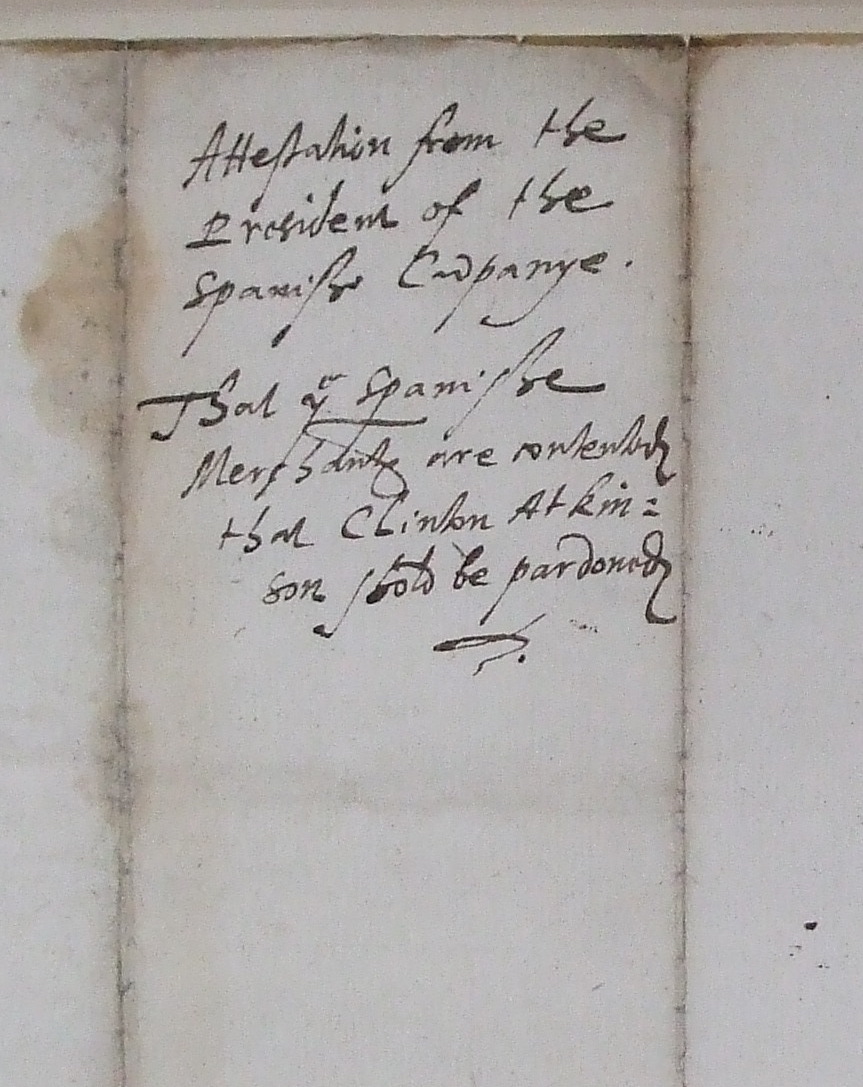 Attestation from the
President of the
Spanishe Cōpanye.
That yͤ Spanishe
Merchantꝭ are contented
that Clinton Atkin=
son shold be pardoned